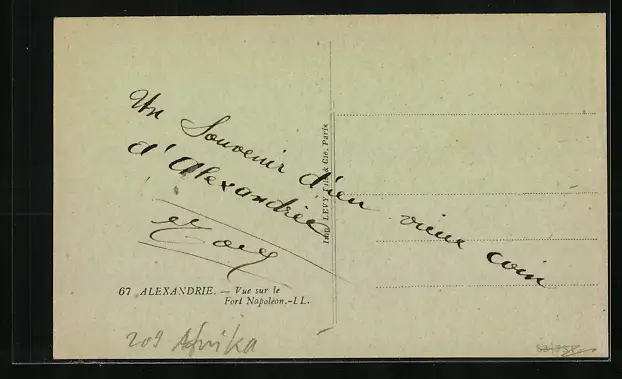 Un Souvenir d'un vieux coin
d'Alexandrie
67 ALEXANDRIE. — Vue sur le
Fort Napoléon.-LL.
Imp. LEVY Fils & Cie, Paris
209 Afrika